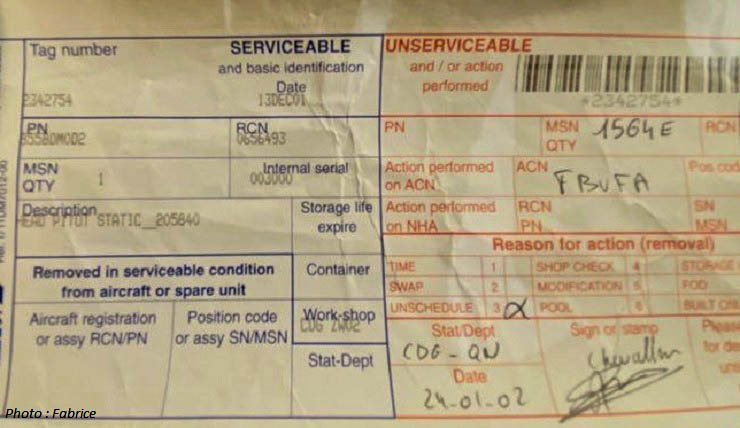 Tag number
SERVICEABLE
and basic identification
Date
2342754
13DEC01
PN
RCN
0656493
MSN
QTY
1
Internal serial
003000
Description
HEAD PITOT STATIC_205640
Storage life
expire
Removed in serviceable condition
from aircraft or spare unit
Container
Aircraft registration
or assy RCN/PN
Position code
or assy SN/MSN
Work-shop
CDG ZW02
Stat-Dept
UNSERVICEABLE
and / or action
performed
*2342754*
PN
MSN
QTY
1564E
RCN
Action performed
on ACN
ACN
FBVFA
Pos cod
Action performed
on NHA
RCN
PN
SN
MSN
Reason for action (removal)
TIME 1 SHOP CHECK 4 STORAGE
SWAP 2 MODIFICATION 5 FOD
UNSCHEDULE 3 α POOL 6 BUILT
Stat/Dept
CDG-QN
Date
24-01-02
Sign or stamp
Please
for de
Photo : Fabrice